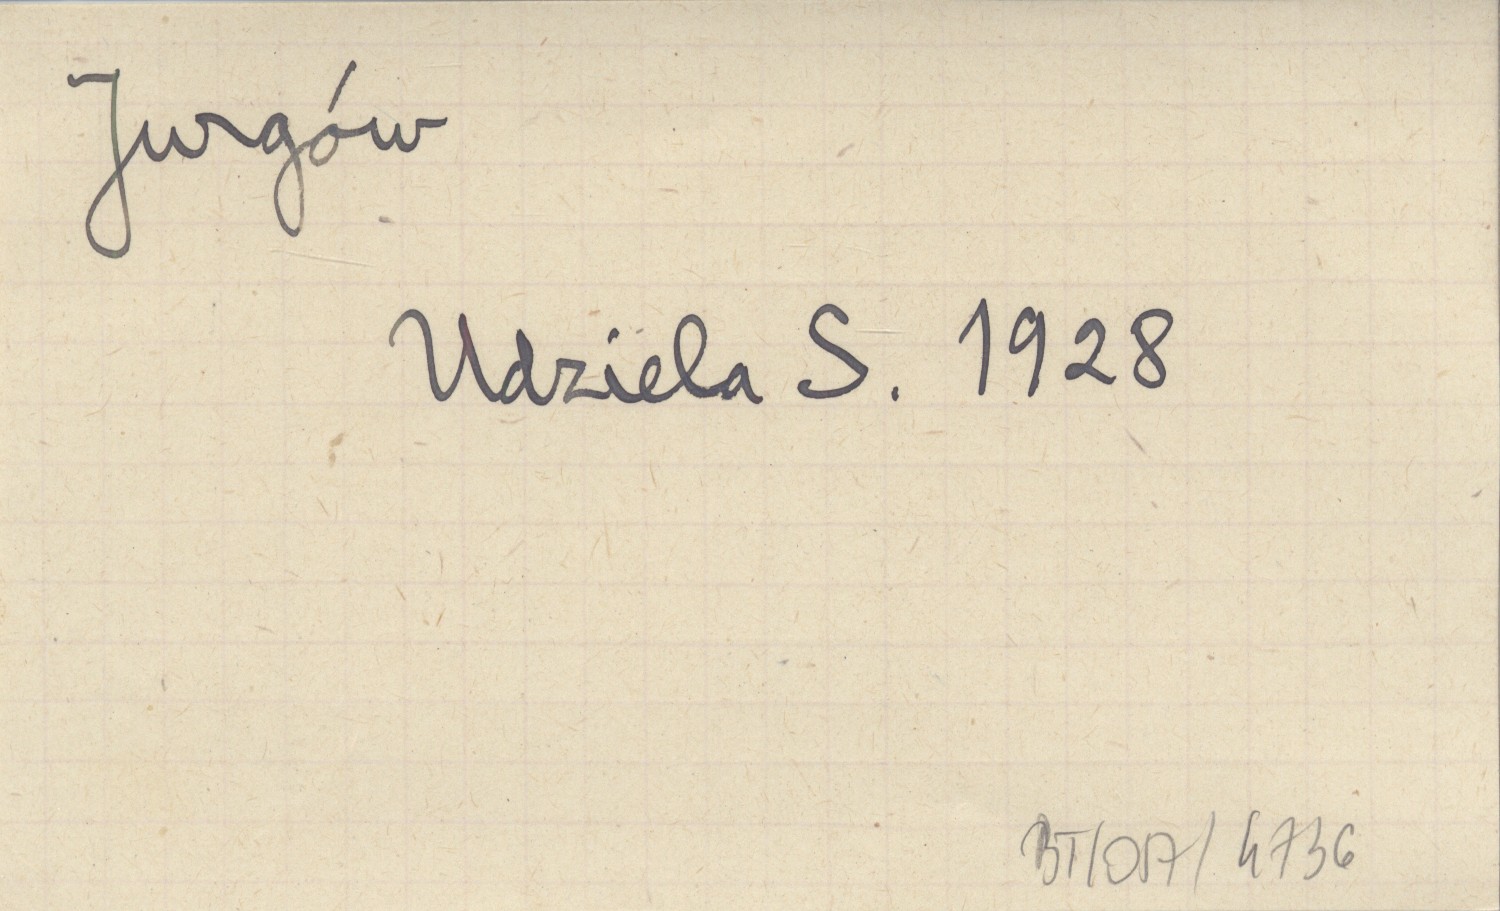 Jurgów
Udziela S. 1928
BT/OA/4736